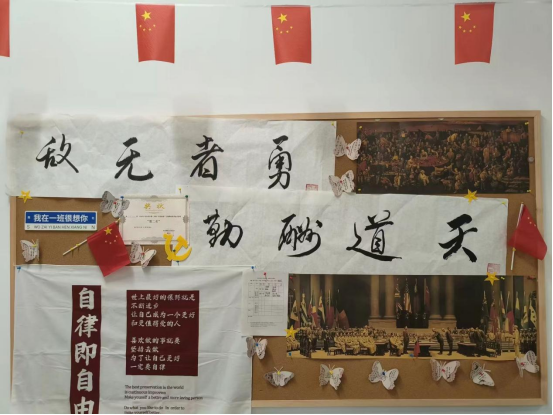 勇者无敌
天道酬勤
我在一班很想你
WO ZAI YI BAN HEN XIANG NI
奖状
自律即自由
世上最好的保护就是
不断进步
让自己成为一个更好
和更值得爱的人
喜欢做的事就要
坚持去做
为了让自己更好
一定要自律
The best preservation in the world
is continuous progress
Make yourself a better and more loving person
Do what you like to do In order to